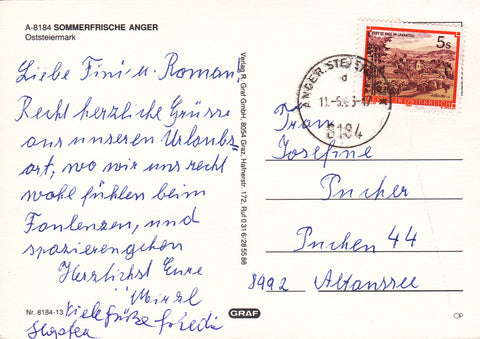 A-8184 SOMMERFRISCHE ANGER
Oststeiermark
Liebe Fini u. Roman,
Recht herzliche Grüsse
aus unseren Urlaubs
ort, wo wir uns recht
wohl fühlen beim
Faulenzen, und
spazierengehen
Herzlichst Eure
Mirzl
Viele Grüße
Nr. 8184-13
Verlag R. Graf GmbH, 8054 Graz, Hafnerstr. 172, Ruf 0316/28 55 88
GRAF
OP
STIFT ST. PAUL IM LAVANTTAL
5s
REPUBLIK ÖSTERREICH
ANGER, STEIERM
d
8184
Frau
Josefine
Pucher
Puchen 44
8992 Altaussee